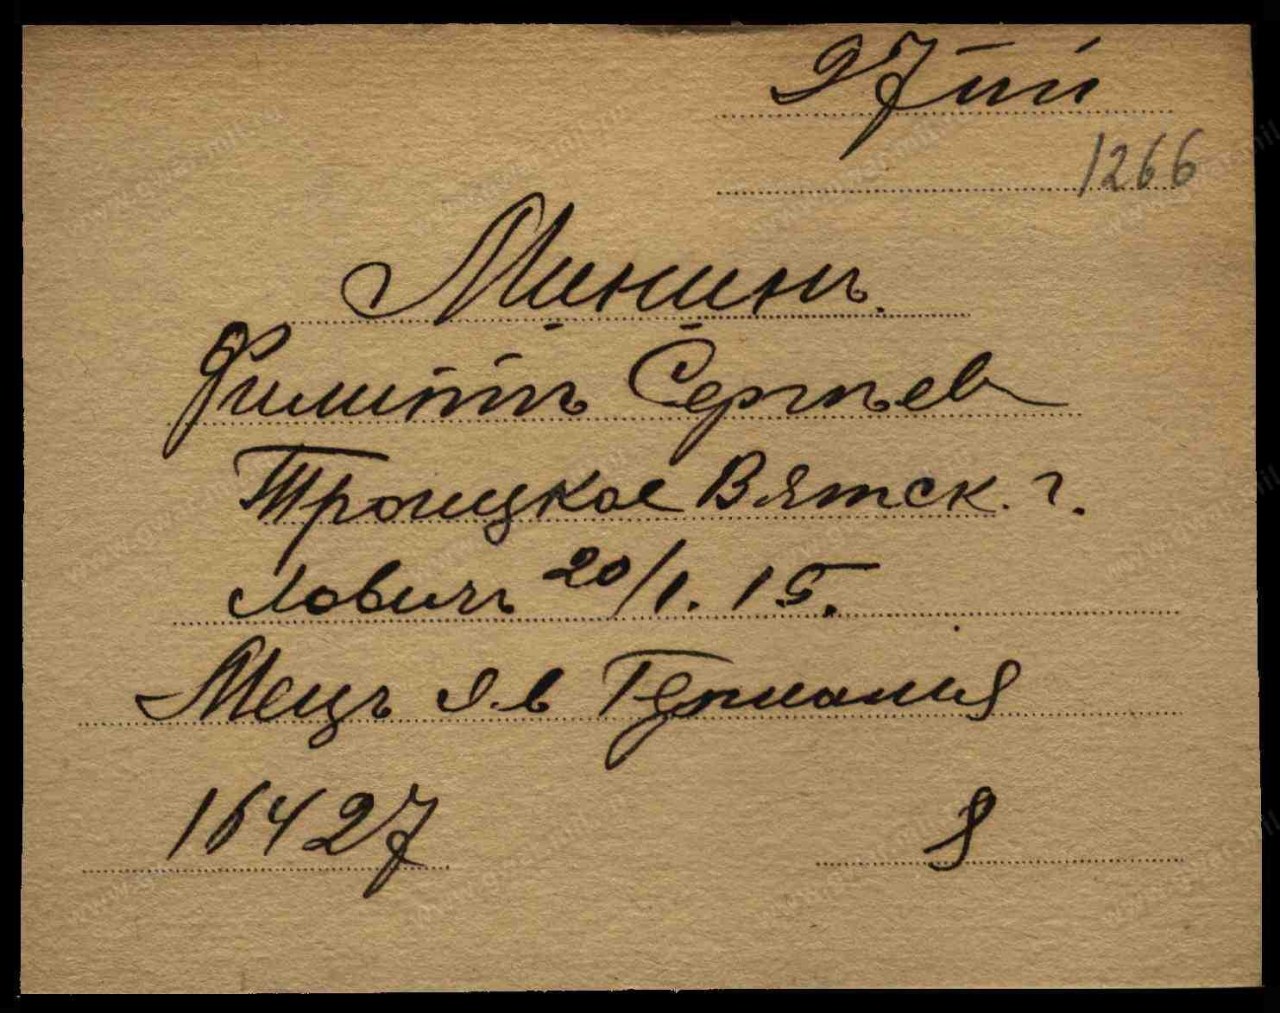 97 пп
1266
Мининъ.
Филиппъ Сергѣев
Троицкое Вятск. г.
Ловичъ 20/1. 15.
Мецъ я.в Германия
16427 8